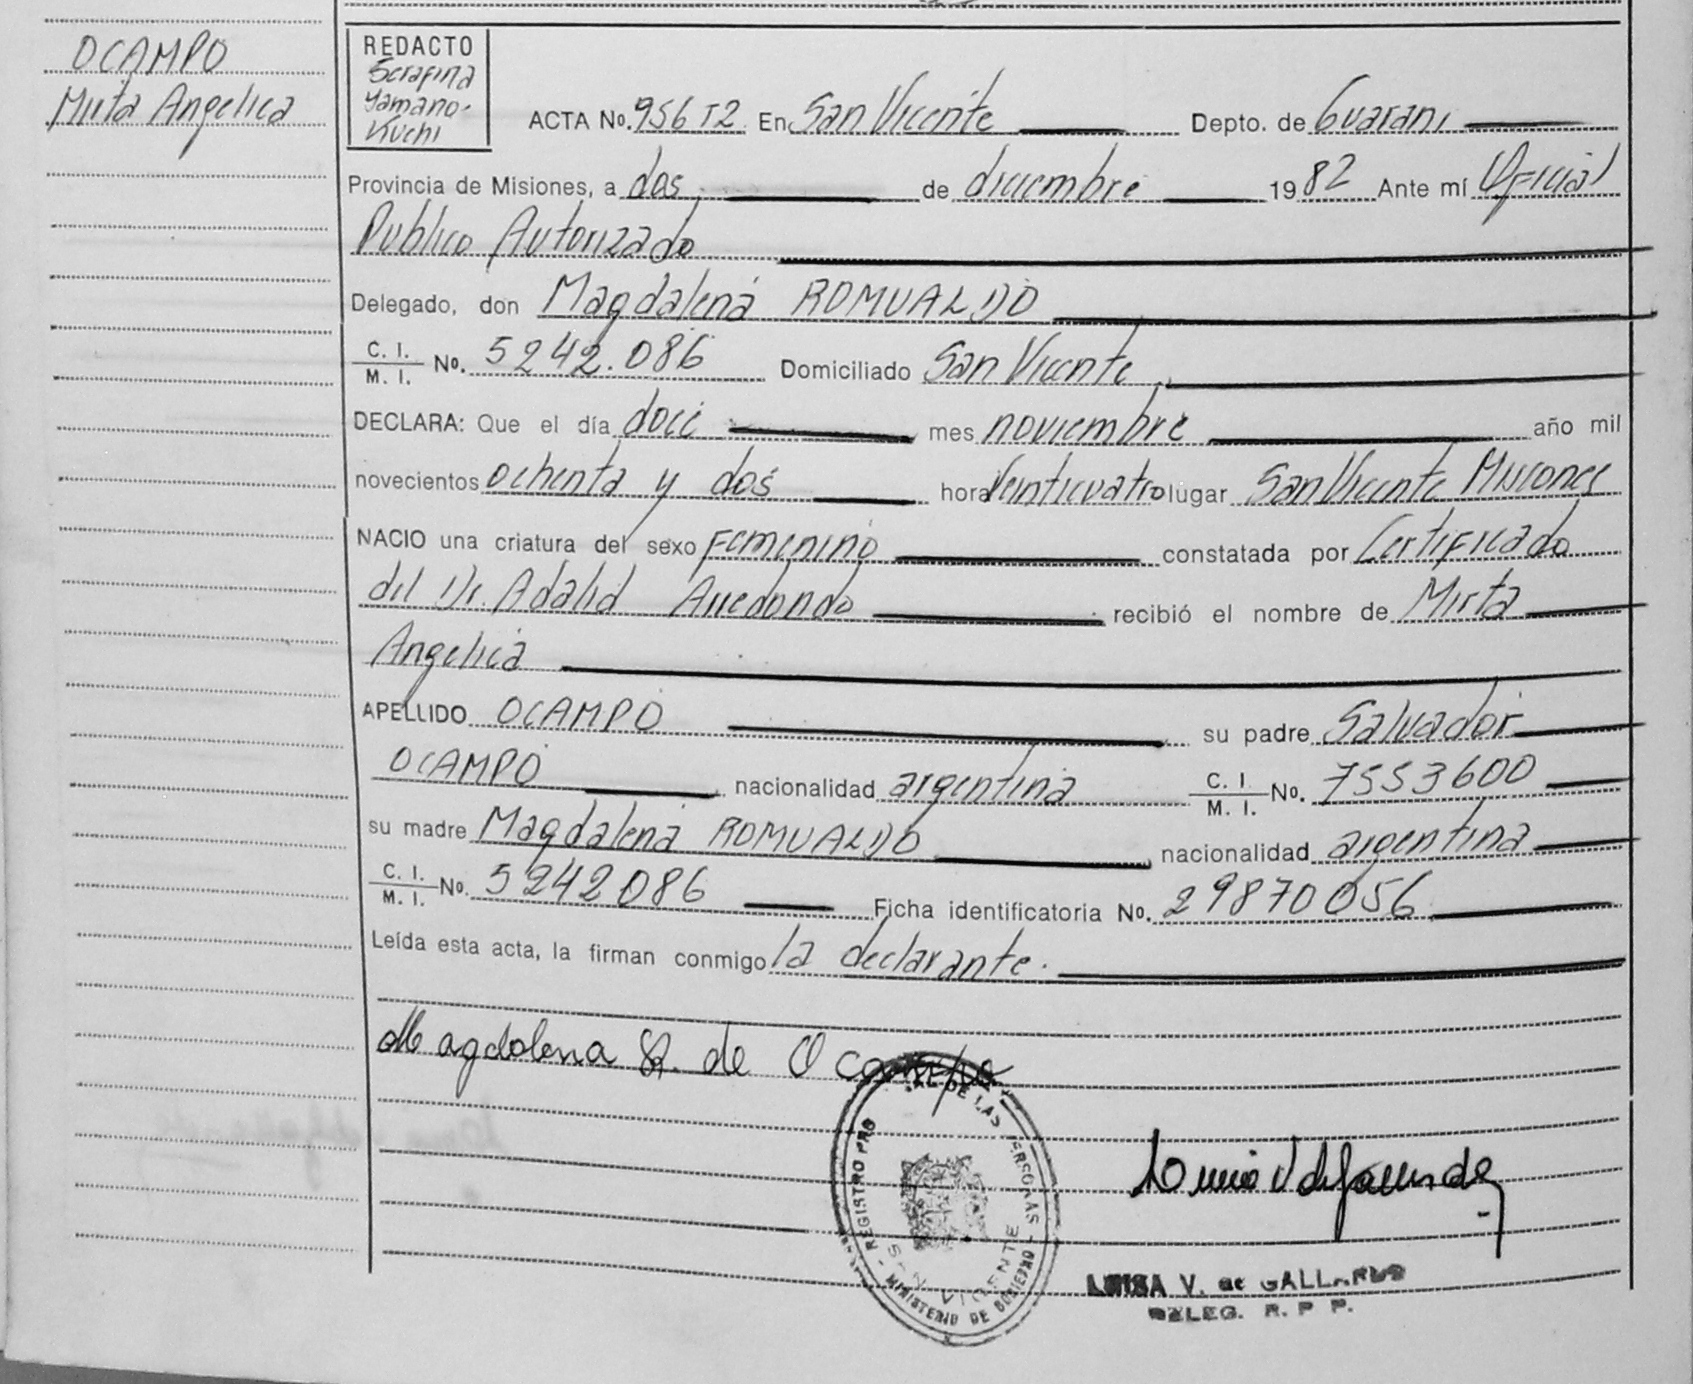 OCAMPO
Mirta Angelica
REDACTO
Serafina
Yamano-
Kuchi
ACTA No. 956 T2 En San Vicente Depto. de Guarani
Provincia de Misiones, a dos de diciembre 1982 Ante mí Oficial
Publico Autorizado
Delegado, don Magdalena ROMUALDO
C. I.
M. I. No. 5242.086 Domiciliado San Vicente
DECLARA: Que el día doce mes noviembre año mil
novecientos ochenta y dos hora Veinticuatro lugar San Vicente Misiones
NACIO una criatura del sexo Femenino constatada por Certificado
del Dr. Adalid Arredondo recibió el nombre de Mirta
Angelica
APELLIDO OCAMPO su padre Salvador
OCAMPO nacionalidad argentina C. I.
M. I. No. 7553600
su madre Magdalena ROMUALDO nacionalidad argentina
C. I.
M. I. No. 5242086 Ficha identificatoria No. 29870056
Leída esta acta, la firman conmigo la declarante.
Magdalena R. de Ocampo
REGISTRO DE LAS PERSONAS
MINISTERIO DE GOBIERNO
SAN VICENTE
LUISA V. de GALLARDO
DELEG. R. P. P.